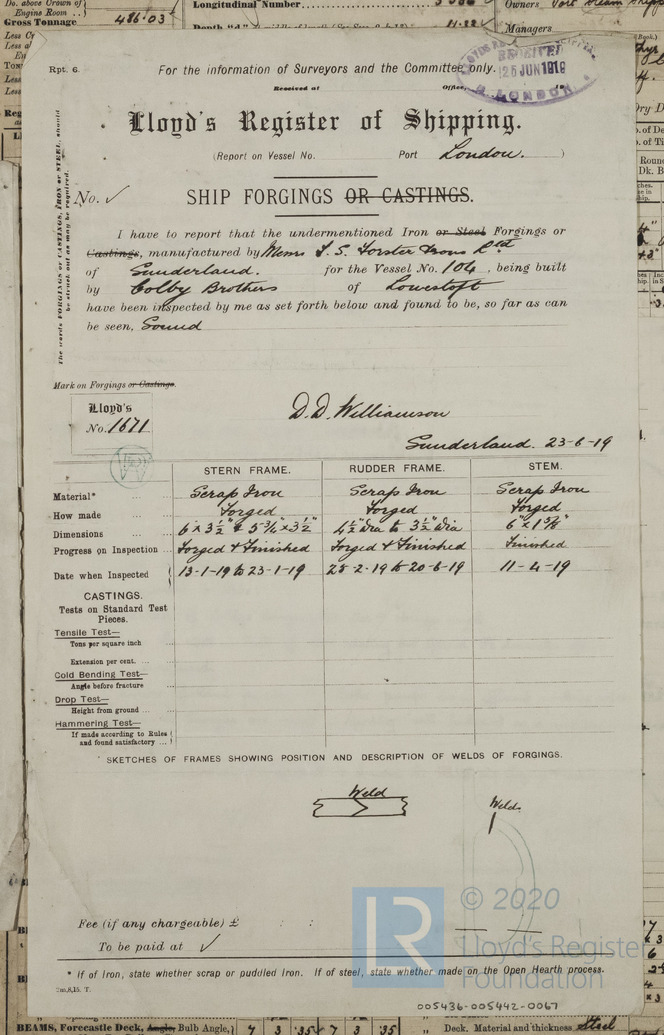 Do. above Crown of
Engine Room ..
Gross Tonnage
486.03
Longitudinal Number
Owners
Managers
Rpt. 6.
For the information of Surveyors and the Committee only.
Received at
Office,
RECEIVED
25 JUN 1919
LONDON
Lloyd's Register of Shipping.
(Report on Vessel No. Port London. )
No. ✓
SHIP FORGINGS OR CASTINGS.
The words FORGINGS or CASTINGS, IRON or STEEL, should
be struck out as may be required.
I have to report that the undermentioned Iron or Steel Forgings or
Castings, manufactured by Messrs T. S. Forster & Sons Ltd
of Sunderland. for the Vessel No. 104, being built
by Colby Brothers of Lowestoft
have been inspected by me as set forth below and found to be, so far as can
be seen, Sound
Mark on Forgings or Castings.
Lloyd's
No. 1671
D. D. Williamson
Sunderland. 23-6-19
STERN FRAME. RUDDER FRAME. STEM.
Material* Scrap Iron Scrap Iron Scrap Iron
How made Forged Forged Forged
Dimensions 6" x 3½" & 5¾" x 3½" 4½" dia to 3½" dia 6" x 1⅝"
Progress on Inspection Forged & Finished Forged & Finished Finished
Date when Inspected 13-1-19 to 23-1-19 25-2-19 to 20-6-19 11-4-19
CASTINGS.
Tests on Standard Test
Pieces.
Tensile Test—
Tons per square inch
Extension per cent.
Cold Bending Test—
Angle before fracture
Drop Test—
Height from ground
Hammering Test—
If made according to Rules
and found satisfactory
SKETCHES OF FRAMES SHOWING POSITION AND DESCRIPTION OF WELDS OF FORGINGS.
Weld
Weld
Fee (if any chargeable) £ : :
To be paid at ✓
* If of Iron, state whether scrap or puddled Iron. If of steel, state whether made on the Open Hearth process.
2m,8,15. T.
LR
© 2020
Lloyd's Register
Foundation
005436-005442-0067
BEAMS, Forecastle Deck, Angle, Bulb Angle, 7 3 .35 7 3 .35
Deck. Material and thickness Steel